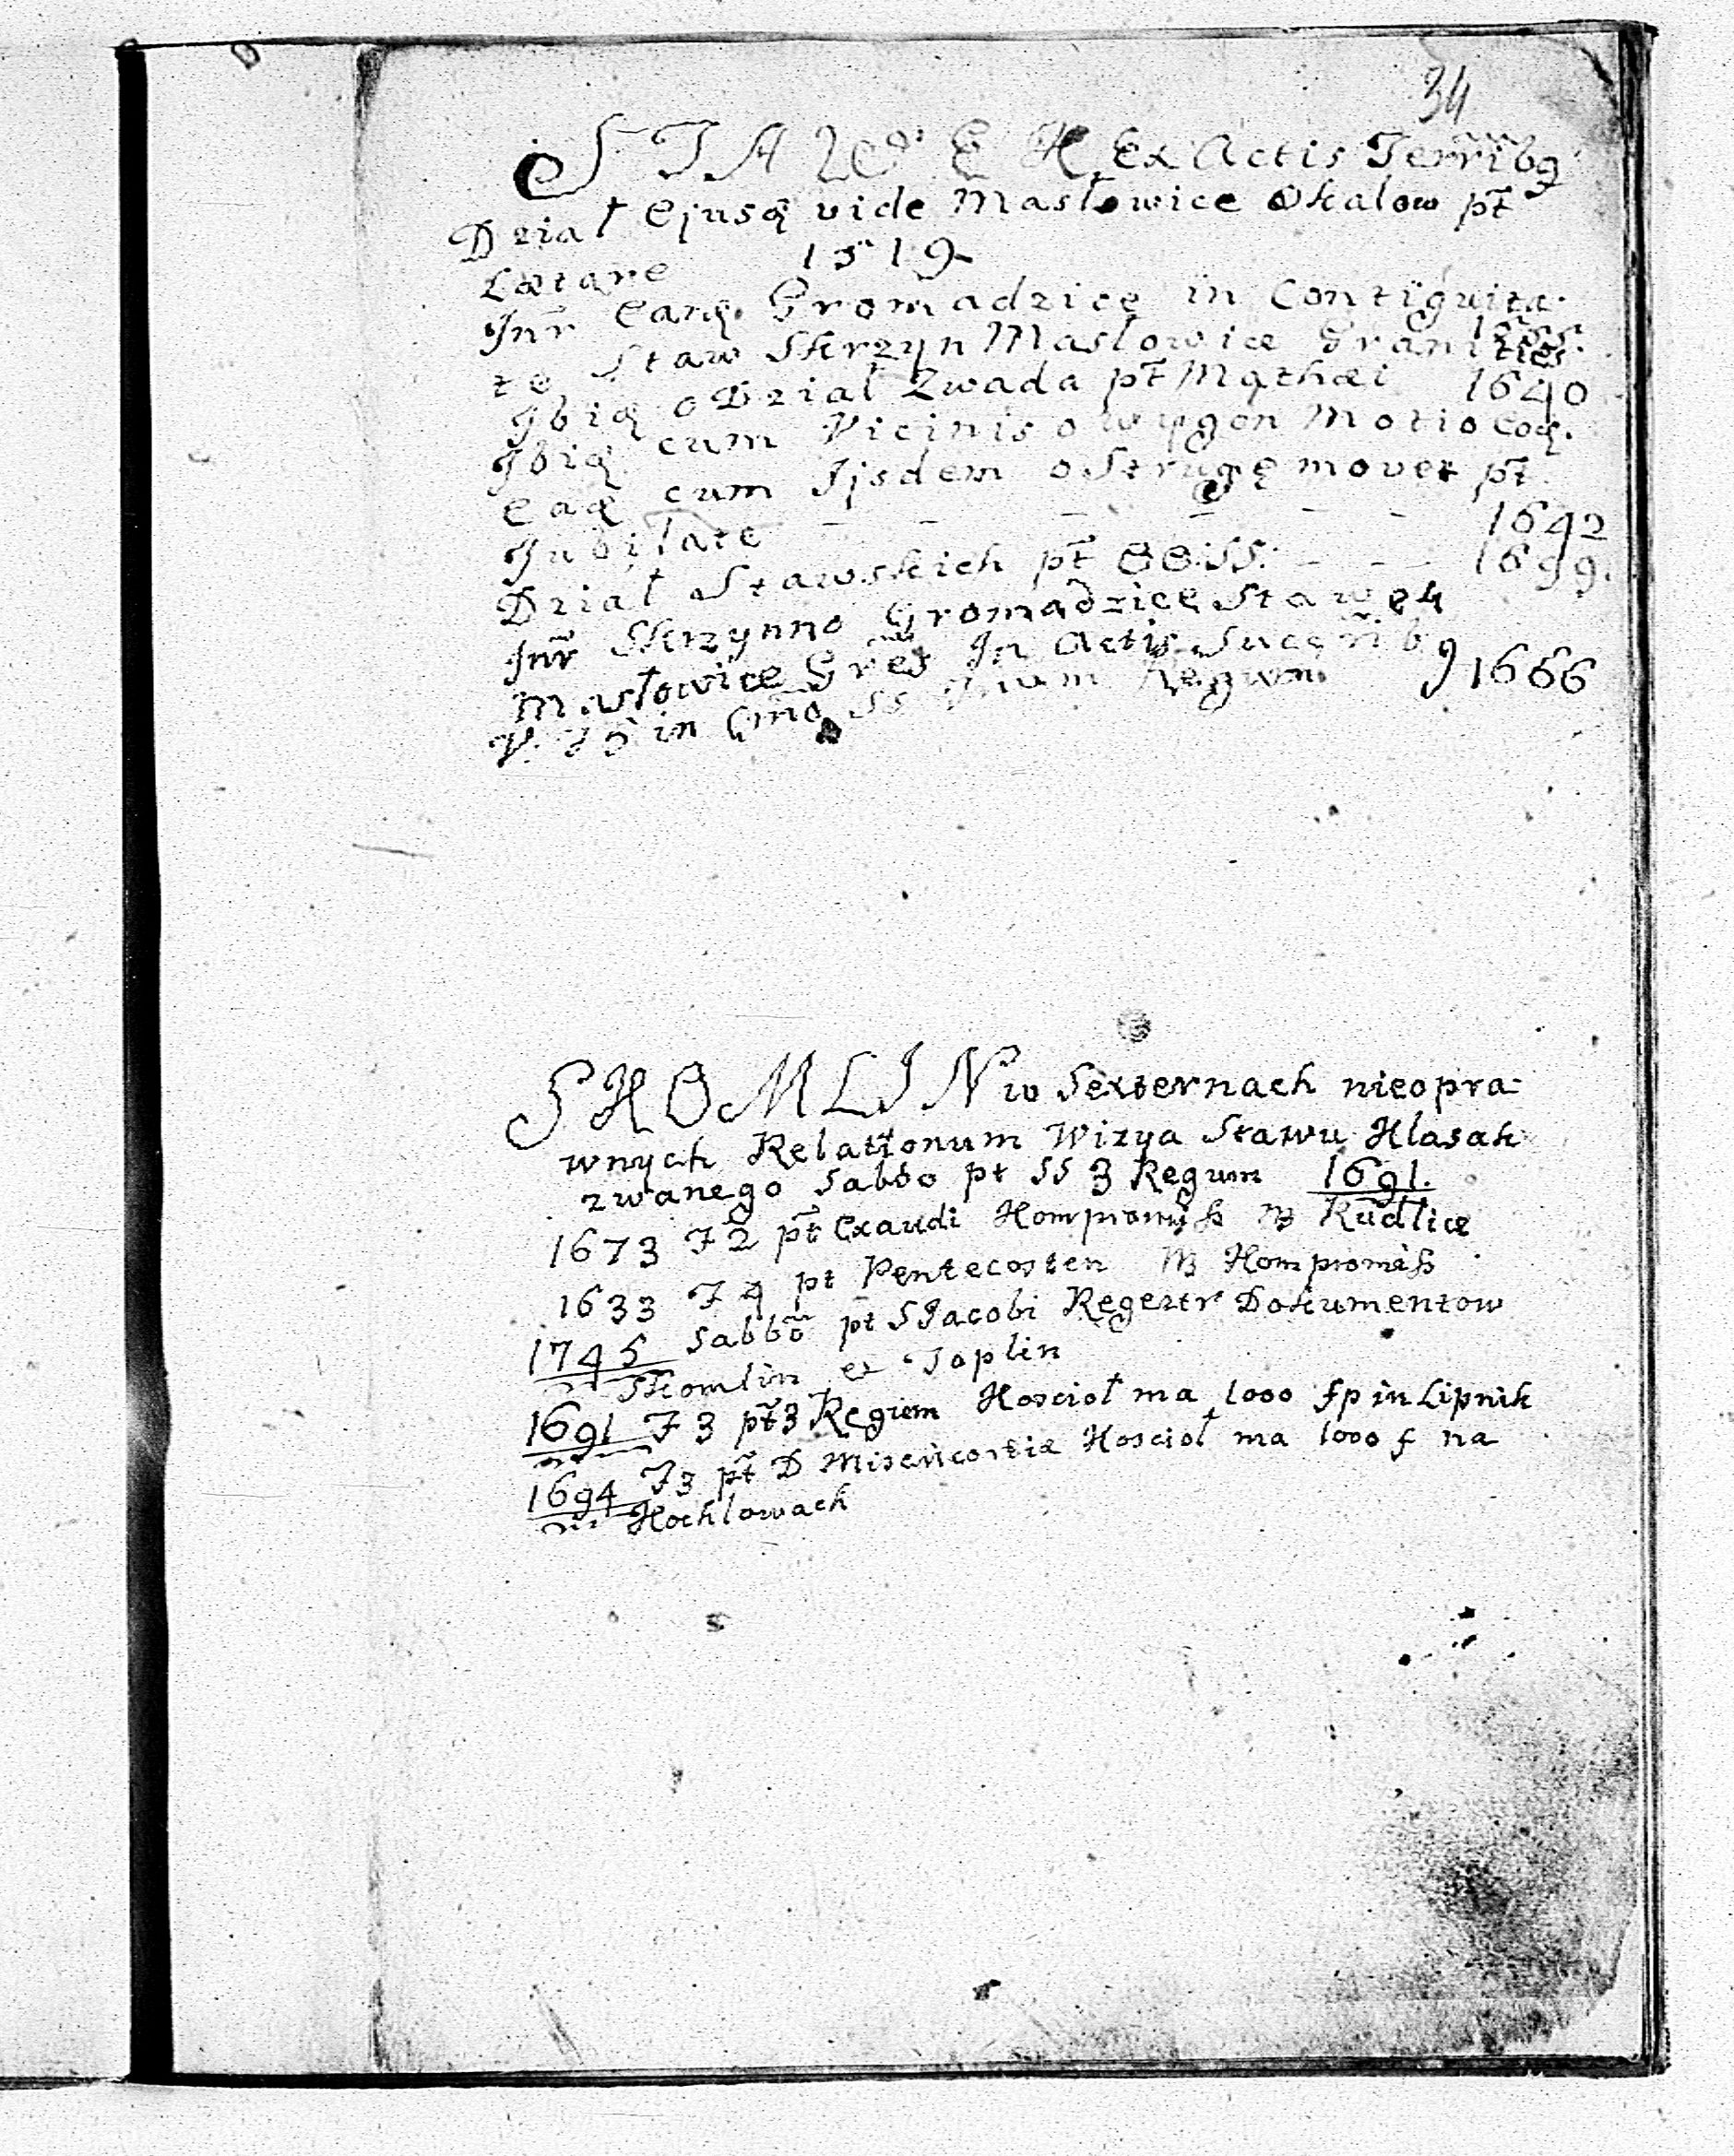 34
STAWEK Ex Actis Terrîbq
Dział Ejusq vide Masłowice Skalow pt
Lætare 1519
Inr Earq Gromadzice in Contiguita
te Staw Skrzyn Masłowice Granities
Ibiq o Dział Zwada pt Mathæi 1640
Ibiq cum Vicinis o wygon Motio Eoq.
Eaq cum Ijsdem o Strugę movet pt
Jubilate - - - - - - 1642
Dział Stawskich pt OO.SS. - - - 1699.
Inr Skrzynno Gromadzice Stawek
Masłowice Gres In Actis
V. in Cro SS Regum 1666
SKOMLIN w Sexternach nieopra-
wnych Relationum Wizya Stawu Klasak
zwanego Sabbo pt SS 3 Regum 1691.
1673 F 2 pt Exaudi Kompromiss Rudlice
1633 F 4 pt Pentecosten Kompromiss
1745 Sabbo pt S Jacobi Regestr Dokumentow
Skomlin et Toplin
1691 F 3 pt 3 Regum Koscioł ma 1000 fp in Lipnik
1694 F 3 pt D Misericordiæ Kosciol ma 1000 f na
Kochlowach